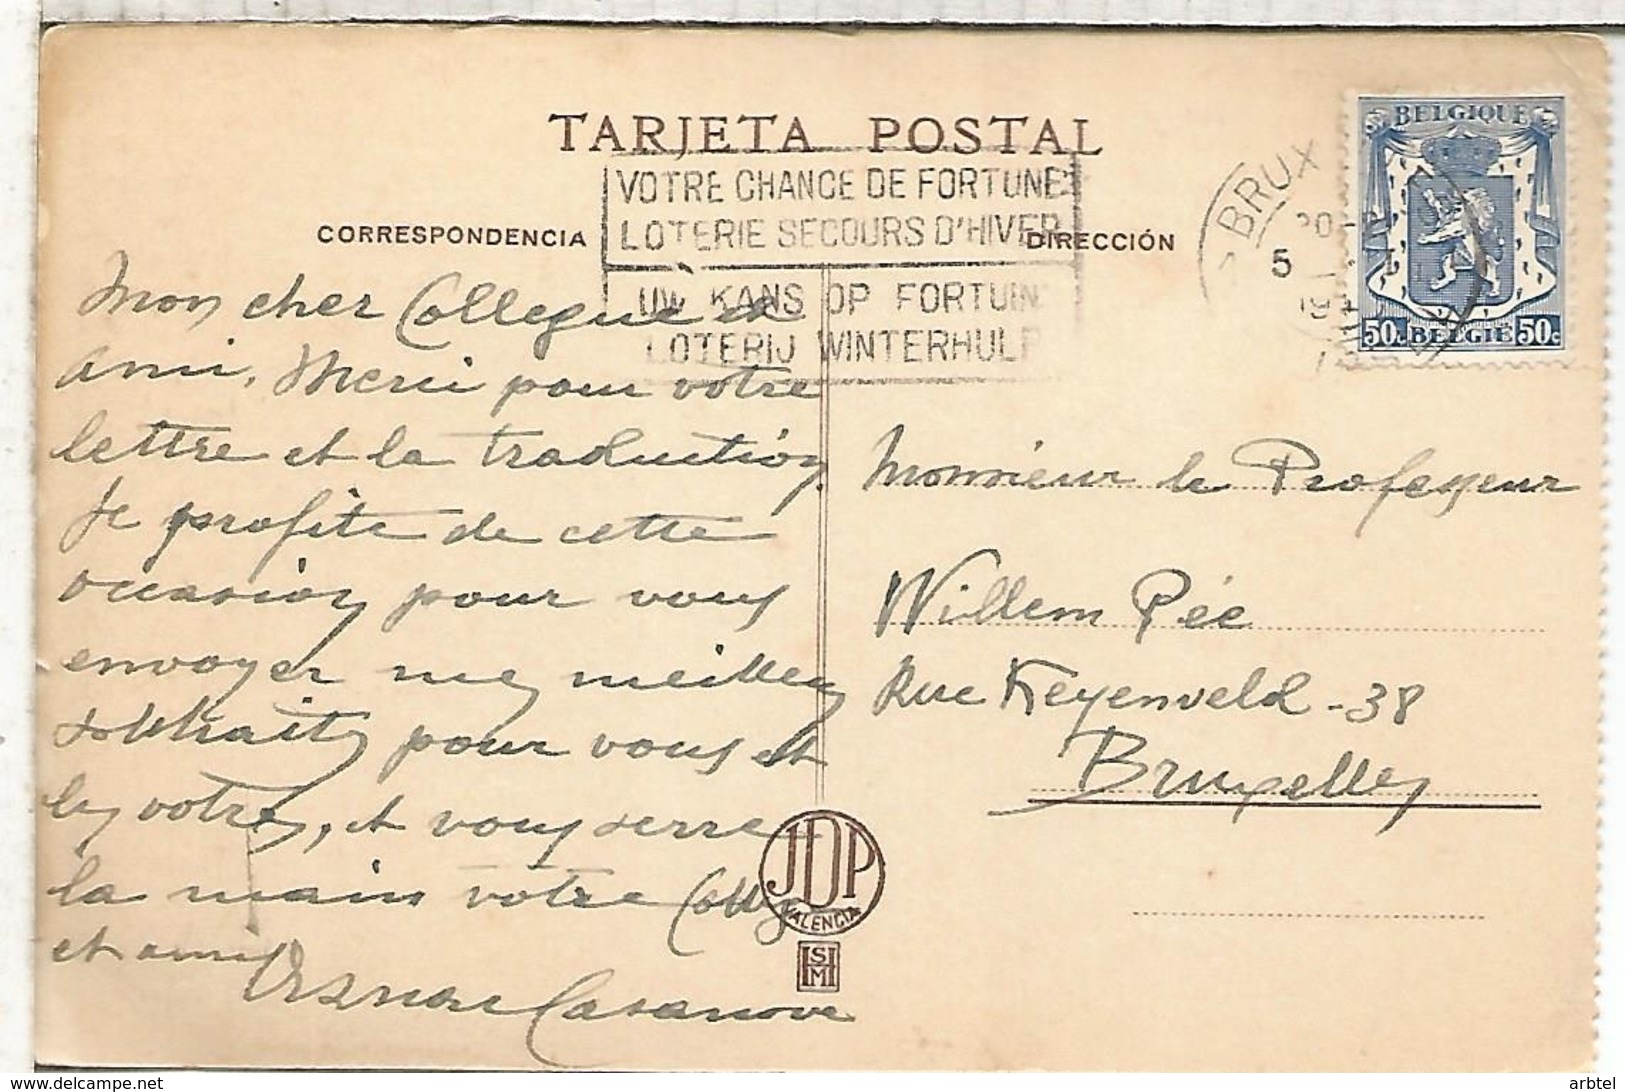 TARJETA POSTAL
VOTRE CHANCE DE FORTUNE
LOTERIE SECOURS D'HIVER
UW KANS OP FORTUIN
LOTERIJ WINTERHULP
CORRESPONDENCIA
DIRECCIÓN
BRUX
5
BELGIQUE
50c BELGIE 50c
Mon cher Collegue et
ami. Merci pour votre
lettre et la traduction.
Je profite de cette
occasion pour vous
envoyer mes meilleurs
souhaits pour vous et
les votres, et vous serre
la main votre Colleg
et ami
Casanova
Monsieur le Professeur
Willem Pée
Rue Keyenveld - 38
Bruxelles
JDP
VALENCIA
HSM
delcampe.net
arbtel